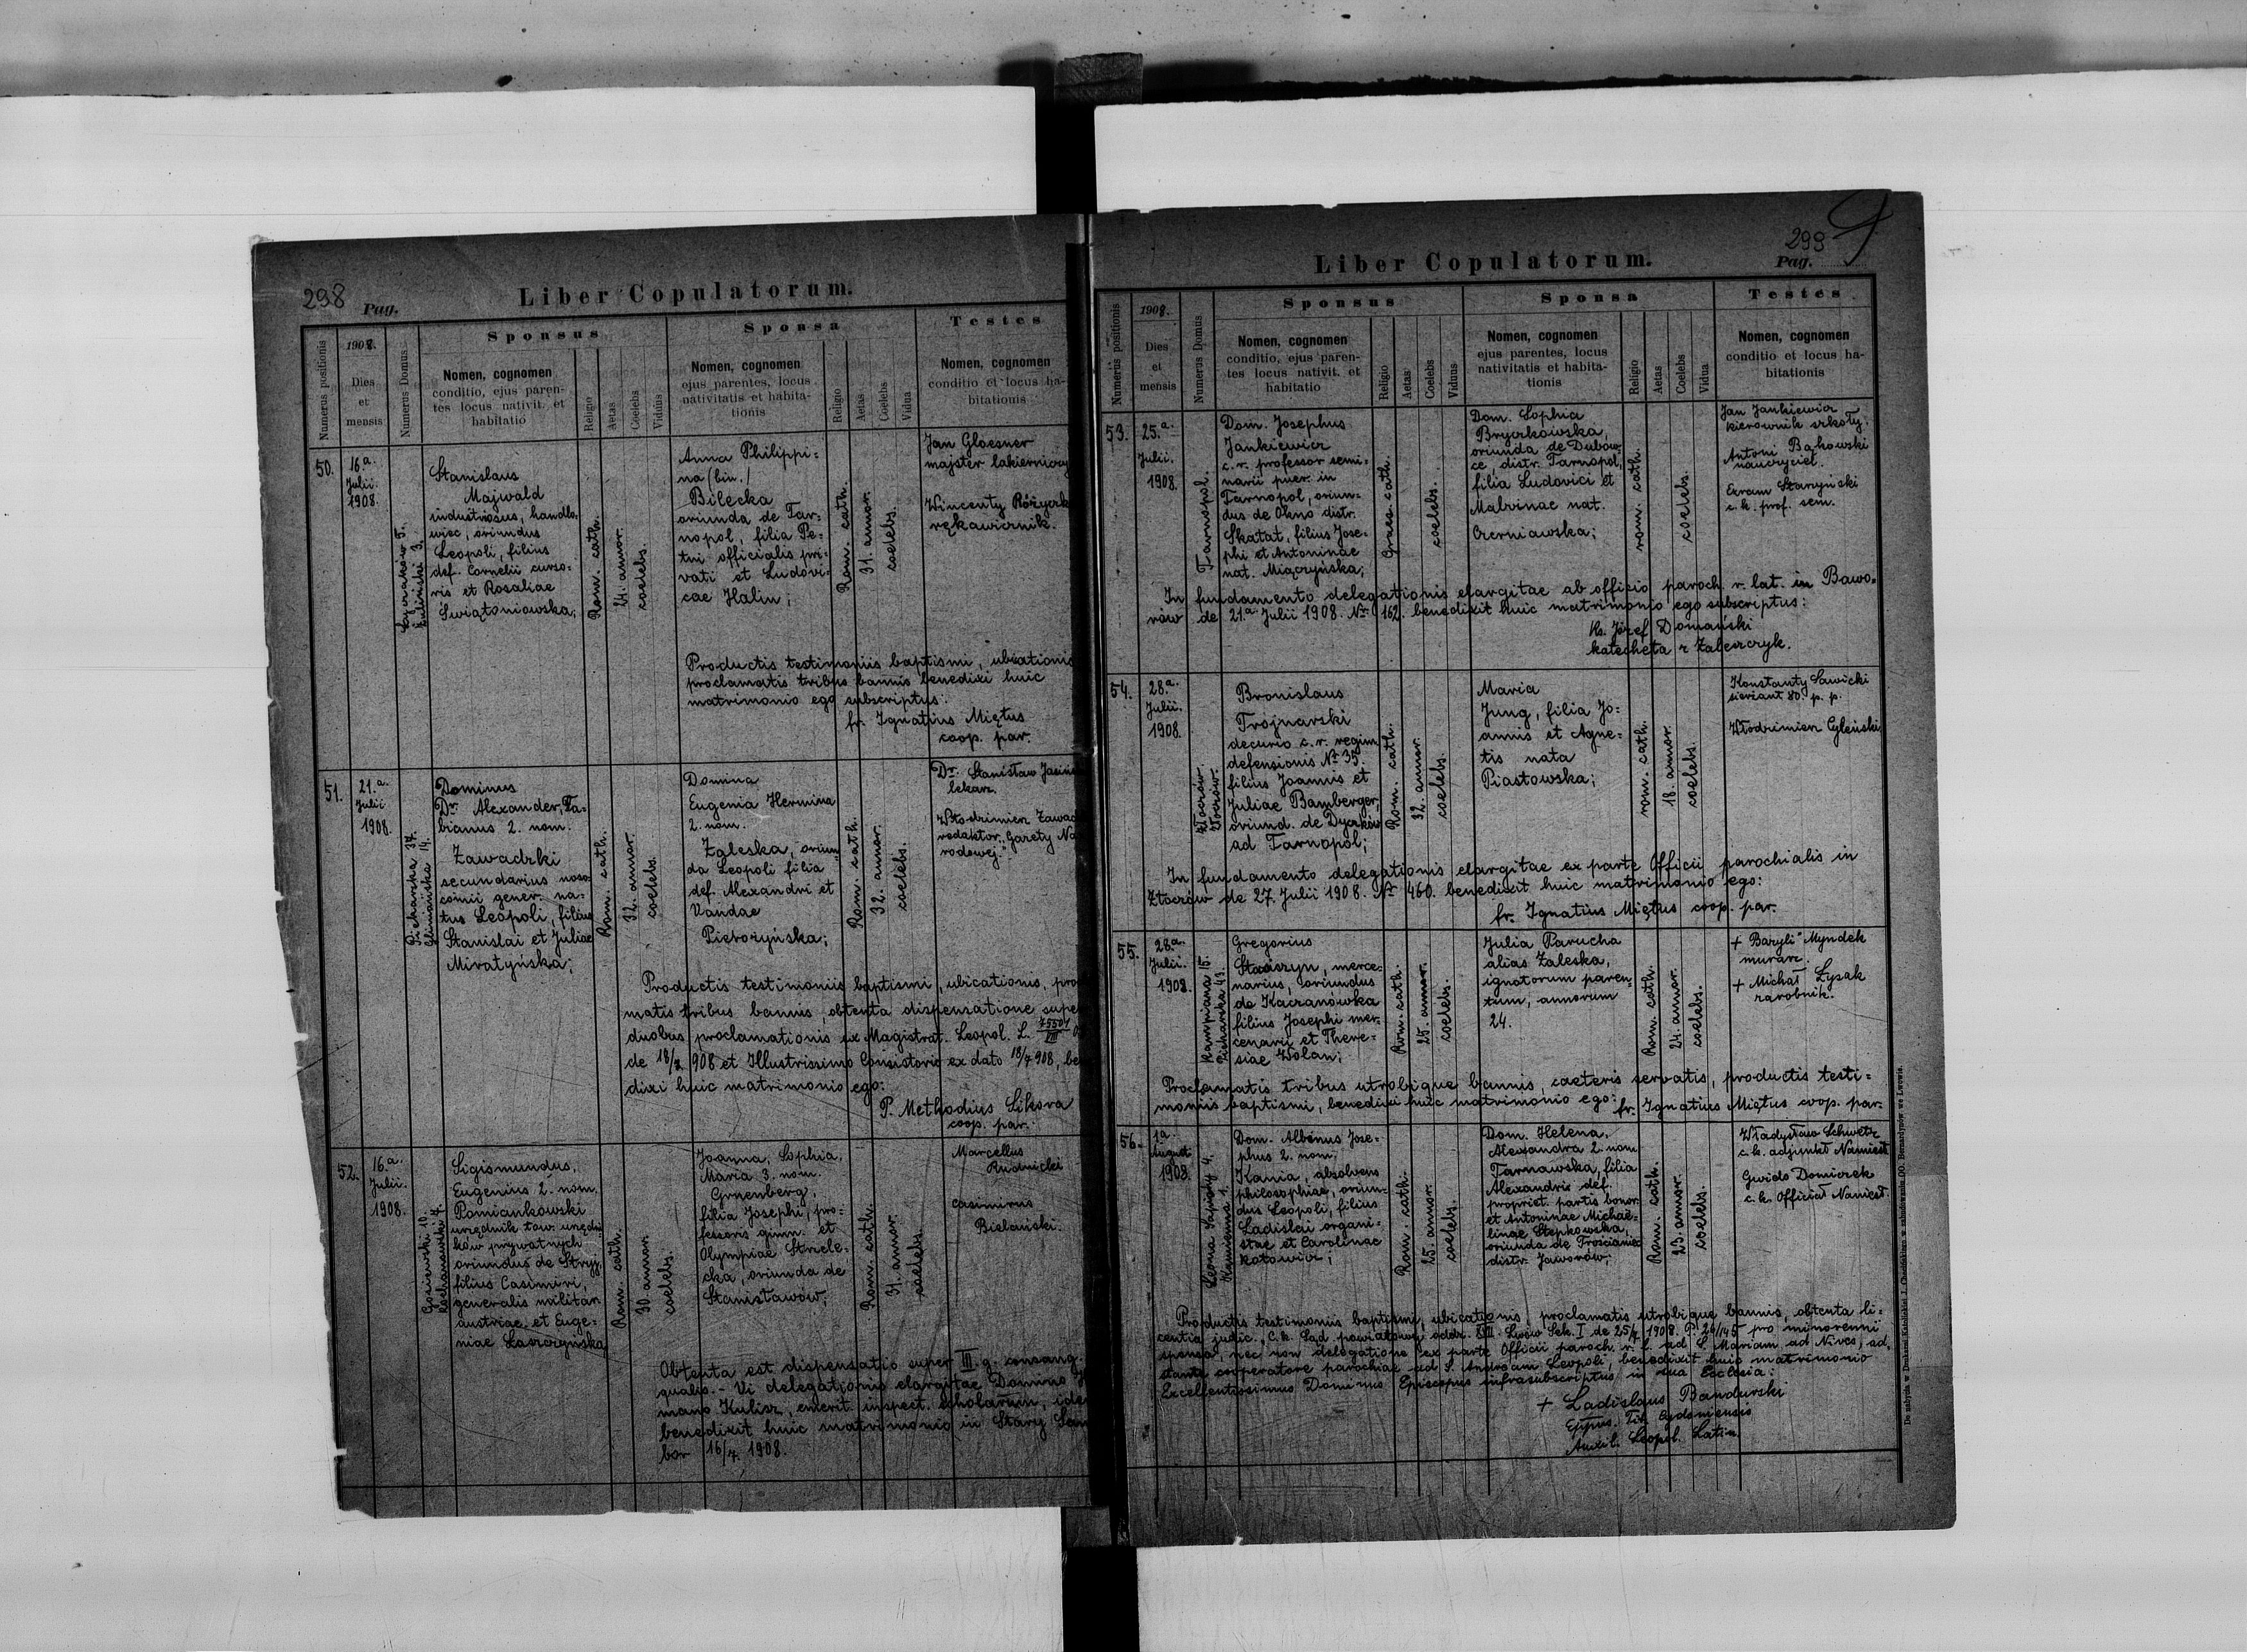 298 Pag.
Liber Copulatorum.
Numerus positionis
1908.
Dies
et
mensis
Numerus Domus
Sponsus
Nomen, cognomen
conditio, ejus paren-
tes locus nativit. et
habitatio
Religio
Aetas
Coelebs
Viduus
Sponsa
Nomen, cognomen
ejus parentes, locus
nativitatis et habita-
tionis
Religio
Aetas
Coelebs
Vidua
Testes
Nomen, cognomen
conditio et locus ha-
bitationis
50.
16a.
Julii.
1908.
Łyczaków 5.
Zulinski 3.
Stanislaus
Majwald
industriosus, handlo-
wiec, oriundus
Leopoli, filius
def. Cornelii curso-
ris et Rosaliae
Świątoniowska;
Rom. cath.
24. annor.
coelebs.
Anna Philippi=
na (bin.)
Bilecka
oriunda de Tar=
nopol, filia Pe=
tri officialis pri=
vati et Ludovi=
cae Halin;
Rom. cath.
31. annor.
coelebs.
Jan Gloesner
majster lakierniczy
Wincenty
rękawicznik.
Productis testimoniis baptismi, ubicationis
proclamatis tribus bannis benedixi huic
matrimonio ego subscriptus:
fr. Ignatius Miętus
coop. par.
51.
21.a.
Julii
1908.
Piekarska 37.
Gliniańska 14.
Dominus
Dr. Alexander, Fa-
bianus 2. nom.
Zawadzki
secundarius noso-
comii gener. na-
tus Leopoli, filius
Stanislai et Juliae
Miratyńska;
Rom. cath.
32. annor.
coelebs.
Domina
Eugenia Hermina
2. nom.
Zaleska, oriun
da Leopoli filia
def. Alexandri et
Vandae
Pietrzyńska;
Rom. cath.
32. annor.
coelebs.
Dr. Stanisław
lekarz.
Włodzimierz
redaktor „Gazety Na
rodowej."
Productis testimoniis baptismi, ubicationis, pro
matis tribus bannis, obtenta dispensatione super
duobus proclamationis ex Magistrat. Leopol. L. 75501/VIII
de 18/7 908 et Illustrissimo Consistorio ex dato 18/7 908, be
dixi huic matrimonio ego:
P. Methodius Sikora
coop. par.
52.
16.a.
Julii.
1908.
Gosiewski 10.
Kochanowski 4.
Sigismundus,
Eugenius 2. nom.
Pomiankowski
urzędnik tow. urzędni
ków prywatnych
oriundus de Stryj,
filius Casimiri,
generalis militar.
austriae. et Euge=
niae Laszczyńska
Rom. cath.
30. annor.
coelebs.
Joanna, Sophia,
Maria 3. nom.
Gruenberg,
filia Josephi, pro=
fessoris gimn. et
Olympiae Strzele=
cka, oriunda de
Stanisławów;
Rom. cath.
31. annor.
coelebs.
Marcellus
Rudnicki
Casimirus
Bielański.
Obtenta est dispensatio super III. g. consang.
qualis. - Vi delegationis elargitae Domino
mano Kulisz, emerit. inspect. scholarum, idem
benedixit huic matrimonio in Stary Sam
bor 16/7. 1908.
299
Liber Copulatorum.
Pag.
Numerus positionis
1908.
Dies
et
mensis
Numerus Domus
Sponsus
Nomen, cognomen
conditio, ejus paren-
tes locus nativit. et
habitatio
Religio
Aetas
Coelebs
Viduus
Sponsa
Nomen, cognomen
ejus parentes, locus
nativitatis et habita-
tionis
Religio
Aetas
Coelebs
Vidua
Testes
Nomen, cognomen
conditio et locus ha-
bitationis
53.
25.a.
Julii.
1908.
Tarnopol.
Dom. Josephus
Jankiewicz
c. r. professor semi-
narii puer. in
Tarnopol, oriun-
dus de Okno distr.
Skałat, filius Jose-
phi et Antoninae
nat. Miączyńska;
Graec. cath.
coelebs.
Dom. Sophia
Bryczkowska,
oriunda de Dubów-
ce, distr. Tarnopol,
filia Ludovici et
Malvinae nat.
Czerniawska;
rom. cath.
coelebs.
Jan Jankiewicz
kierownik szkoły.
Antoni Bąkowski
nauczyciel.
Exram Staryński
c. k. prof. sem.
In fundamento delegationis elargitae ab officio paroch. r. lat. in Bawo=
rów de 21.a Julii 1908. Nr. 162. benedixit huic matrimonio ego subscriptus:
Ks. Józef Domański
katecheta z Zaleszczyk.
54.
28.a.
Julii.
1908.
Złoczów.
Złoczów.
Bronislaus
Trójnarski
decurio c. r. regim.
defensionis Nr 35.
filius Joannis et
Juliae Bamberger,
oriund. de Dyczków
ad Tarnopol;
Rom. cath.
32. annor.
coelebs.
Maria
Jung, filia Jo=
annis et Agne=
tis nata
Piastowska;
rom. cath.
18. annor.
coelebs.
Konstanty Sawicki
sierżant 80. p. p.
Włodzimierz Cyleński
In fundamento delegationis elargitae ex parte Officii parochialis in
Złoczów de 27. Julii 1908. Nr 460. benedixit huic matrimonio ego:
fr. Ignatius Miętus coop. par.
55.
28.a.
Julii.
1908.
Kampiana 15.
Piekarska 43.
Gregorius
Staiszyn, merce=
narius, oriundus
de Kaczanówka
filius Josephi mer=
cenarii et There=
siae Wolan;
Rom. cath.
25. annor.
coelebs.
Julia Parucha
alias Zaleska,
ignotorum paren
tum, annorum
24.
Rom. cath.
24. annor.
coelebs.
+ Baryli Myndek
murarz.
+ Michał Łysak
zarobnik.
Proclamatis tribus utrobique bannis, caeteris servatis, productis testi=
moniis baptismi, benedixi huic matrimonio ego: fr. Ignatius Miętus coop. par.
56.
1a.
August.
1908.
Leona Sapiehy 4.
Kamienna 1.
Dom. Albinus Jose=
phus 2. nom.
Kania, absolvens
philosophiae, oriun-
dus Leopoli, filius
Ladislai organi=
stae et Carolinae
Kotowicz;
Rom. cath.
25. annor.
coelebs.
Dom. Helena,
Alexandra 2. nom
Tarnawska, filia
Alexandri def.
propriet. partis bonor.
et Antoninae Michae-
linae Stepkowska,
oriunda de Trościaniec
distr. Jaworów;
Rom. cath.
23 annor.
coelebs.
Władysław Schwetz
c. k. adjunkt Namiest.
Gwido Domiczek
c. k. Official Namiest.
Productis testimoniis baptismi, ubicationis, proclamatis utrobique bannis, obtenta li=
centia judic. C. k. Sąd powiatowy oddz. VIII. Lwów Sek. I de 25/7 1908. P. 26/145 pro minorenni
sponsa, nec non delegatione ex parte Officii paroch. r. l. ad S. Mariam ad Nives, ad,
stante cooperatore parochiae ad S. Andream Leopoli, benedixit huic matrimonio
Excellentissimus Dominus Episcopus infrasubscriptus in sua Ecclesia:
+ Ladislaus Bandurski
Eppus. Tit. Cydoniensis
Auxil. Leopol. Latin.